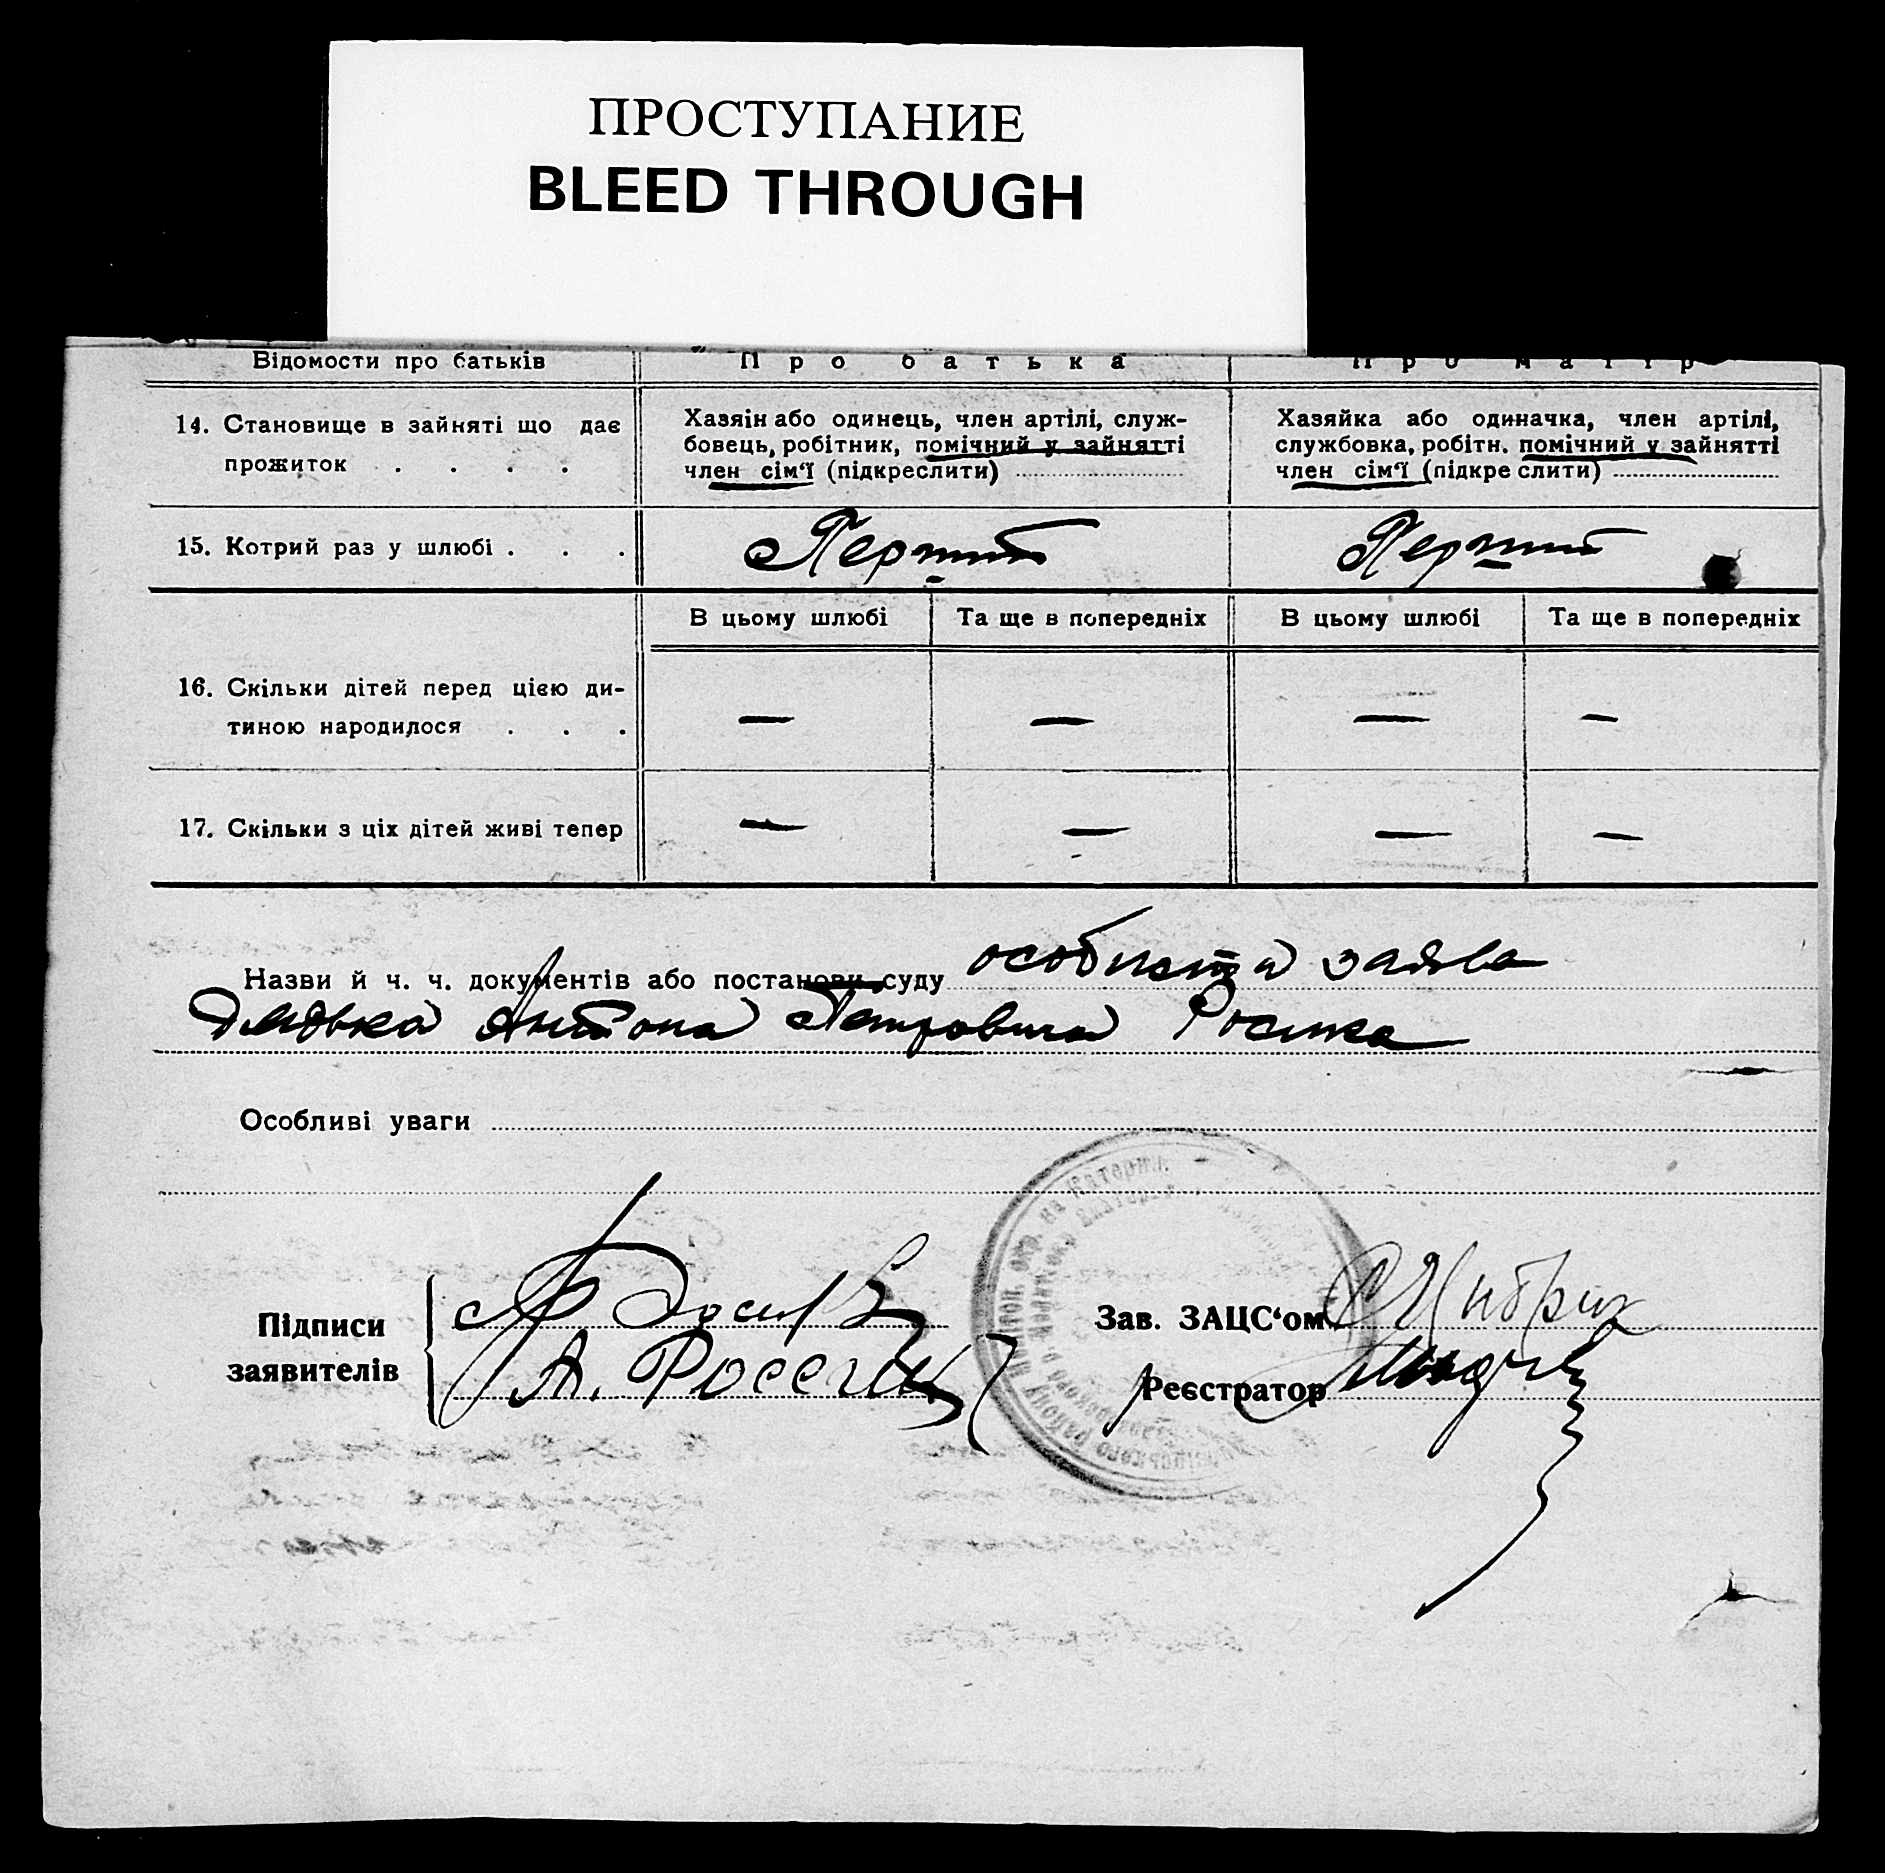 ПРОСТУПАНИЕ
BLEED THROUGH
Відомости про батьків
Про батька
Про матір
14. Становище в зайняті що дає
прожиток . . . .
Хазяін або одинець, член артілі, служ-
бовець, робітник, помічний у зайнятті
член сім'ї (підкреслити)
Хазяйка або одиначка, член артілі,
службовка, робітн. помічний у зайнятті
член сім'ї (підкреслити)
15. Котрий раз у шлюбі . . .
Перший
Перший
В цьому шлюбі
Та ще в попередніх
В цьому шлюбі
Та ще в попередніх
16. Скільки дітей перед цією ди-
тиною народилося . . .
— — — —
17. Скільки з ціх дітей живі тепер
— — — —
Назви й ч. ч. документів або постанови суду особиста заява
дядька Антона Петровича
Особливі уваги
Підписи
заявителів
А.
Зав. ЗАЦС‘ом
Реєстратор